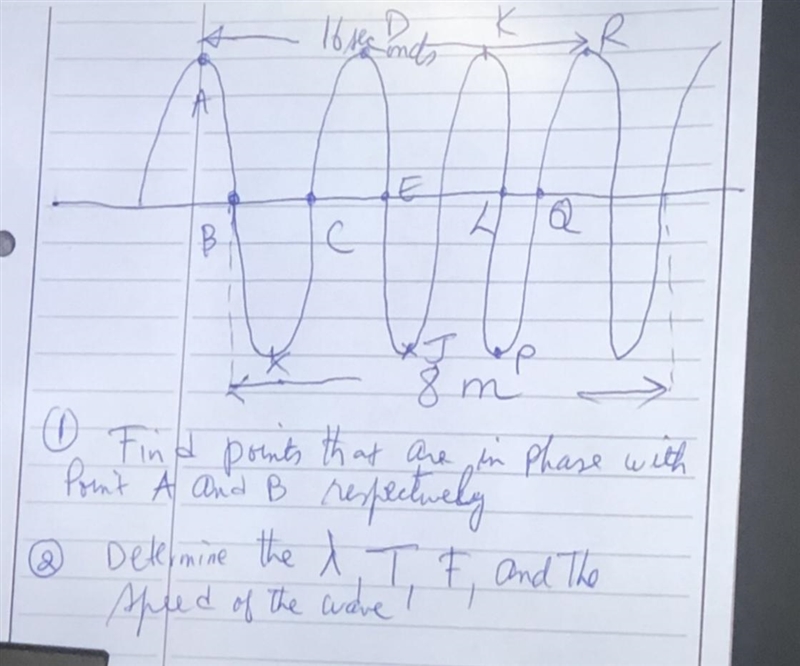 16 seconds D K R
A
E
B C L Q
K J P
8 m
① Find points that are in phase with
Point A and B respectively
② Determine the λ, T, F, and The
Speed of the wave